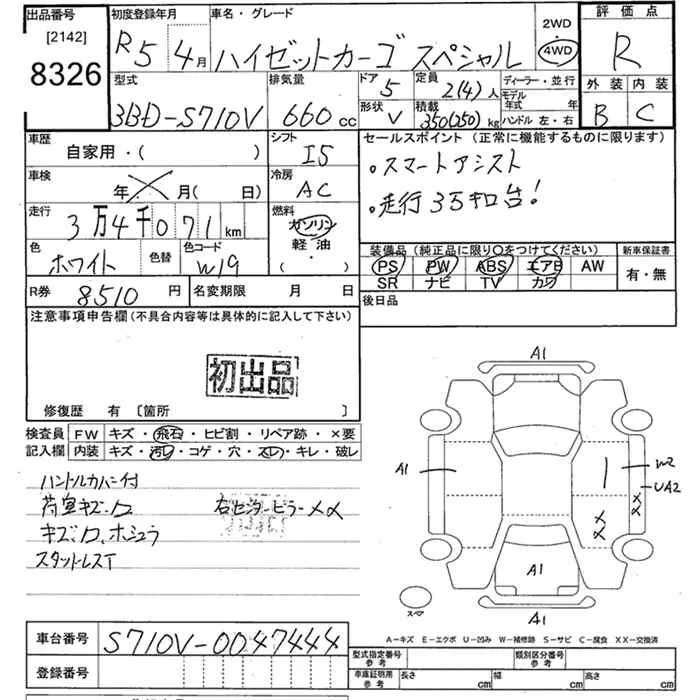 出品番号
[2142]
8326
初度登録年月
R5 4月
車名・グレード
ハイゼットカーゴ スペシャル
2WD
・
4WD
評価点
R
外装 内装
B C
型式
3BD-S710V
排気量
660 cc
ドア
5
形状
V
定員
2(4)人
積載
350(250)kg
ディーラー・並行
モデル
年式 年
ハンドル 左・右
車歴
自家用・( )
シフト
I5
車検
年 月(日)
冷房
AC
走行
3万4千071km
燃料
ガソリン
軽油
( )
色
ホワイト
色替
色コード
W19
R券
8510 円
名変期限 月 日
セールスポイント (正常に機能するものに限ります)
。スマートアシスト
。走行3万キロ台!
装備品(純正品に限り○をつけてください)
PS PW ABS エアB AW
SR ナビ TV カワ
新車保証書
有・無
後日品
注意事項申告欄(不具合内容等は具体的に記入して下さい)
初出品
修復歴 有 [箇所 ]
検査員
記入欄
FW キズ・飛石・ヒビ割・リペア跡・×要
内装 キズ・汚レ・コゲ・穴・スレ・キレ・破レ
ハンドルカバー付
荷室キズ、凹
右センターピラーXX
スタットレスT
A1
A1
W2
UA2
XX
XX
A1
A1
スペア
A-キズ E-エクボ U-凹み W-補修跡 S-サビ C-腐食 XX-交換済
車台番号
S710V-0047444
登録番号
型式指定番号
参考
類別区分番号
参考
車庫証明用
参考
長さ cm
幅 cm
高さ cm